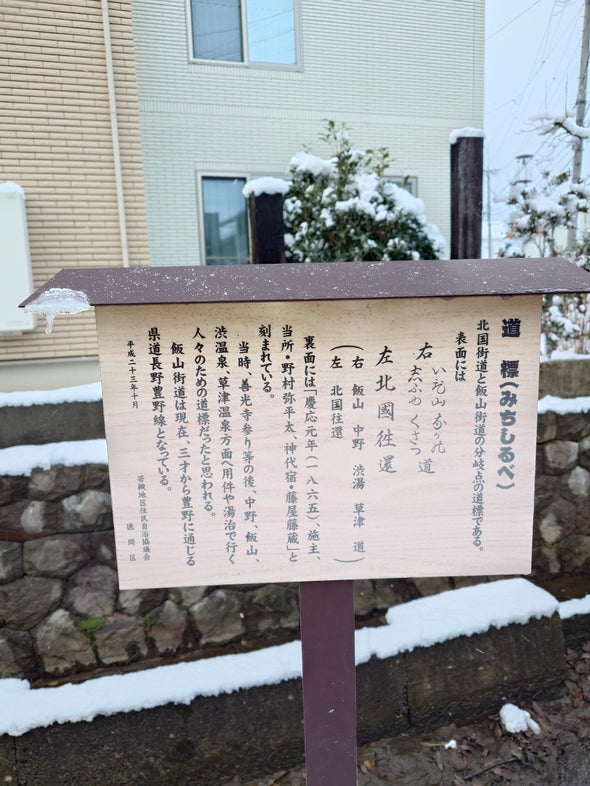 道 標(みちしるべ)
北国街道と飯山街道の分岐点の道標である。
表面には
右 いゝ山 なかの
志ぶゆ くさつ 道
左 北國徃還
(右 飯山 中野 渋湯 草津 道)
(左 北国往還)
裏面には「慶応元年(一八六五)、施主、
当所・野村弥平太、神代宿・藤屋藤蔵」と
刻まれている。
当時、善光寺参り等の後、中野、飯山、
渋温泉、草津温泉方面へ用件や湯治で行く
人々のための道標だったと思われる。
飯山街道は現在、三才から豊野に通じる
県道長野豊野線となっている。
平成二十三年十月
若槻地区住民自治協議会
徳間区